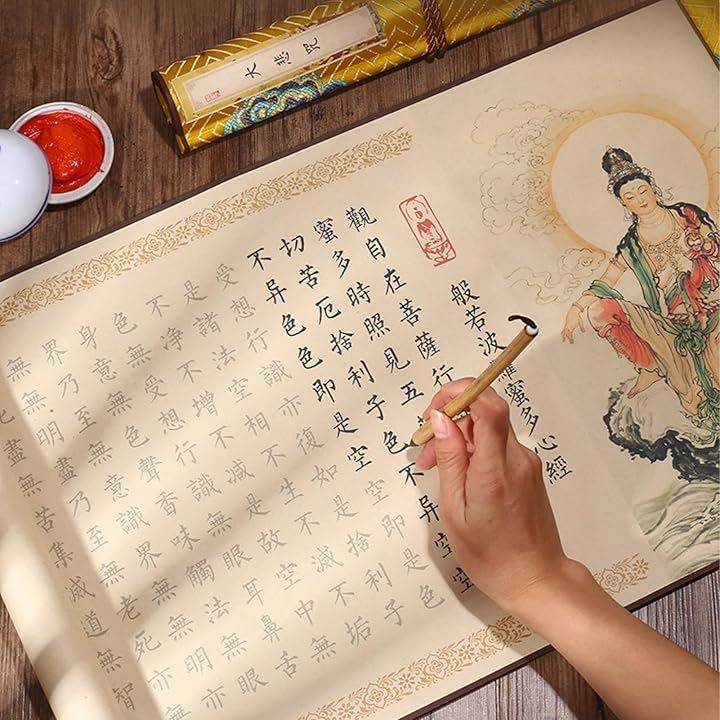 大悲咒
般若波羅蜜多心經
觀自在菩薩行
蜜多時照見五
切苦厄捨利子色不异空空
不异色色即是空空即是色
受想行識亦復如是捨利子
是諸法空相不生不滅不垢
不净不增不減是故空中無
色無受想行識無眼耳鼻舌
身意無色聲香味觸法無眼
界乃至無意識界無無明亦
無無明盡乃至無老死亦
盡無苦集滅道無智